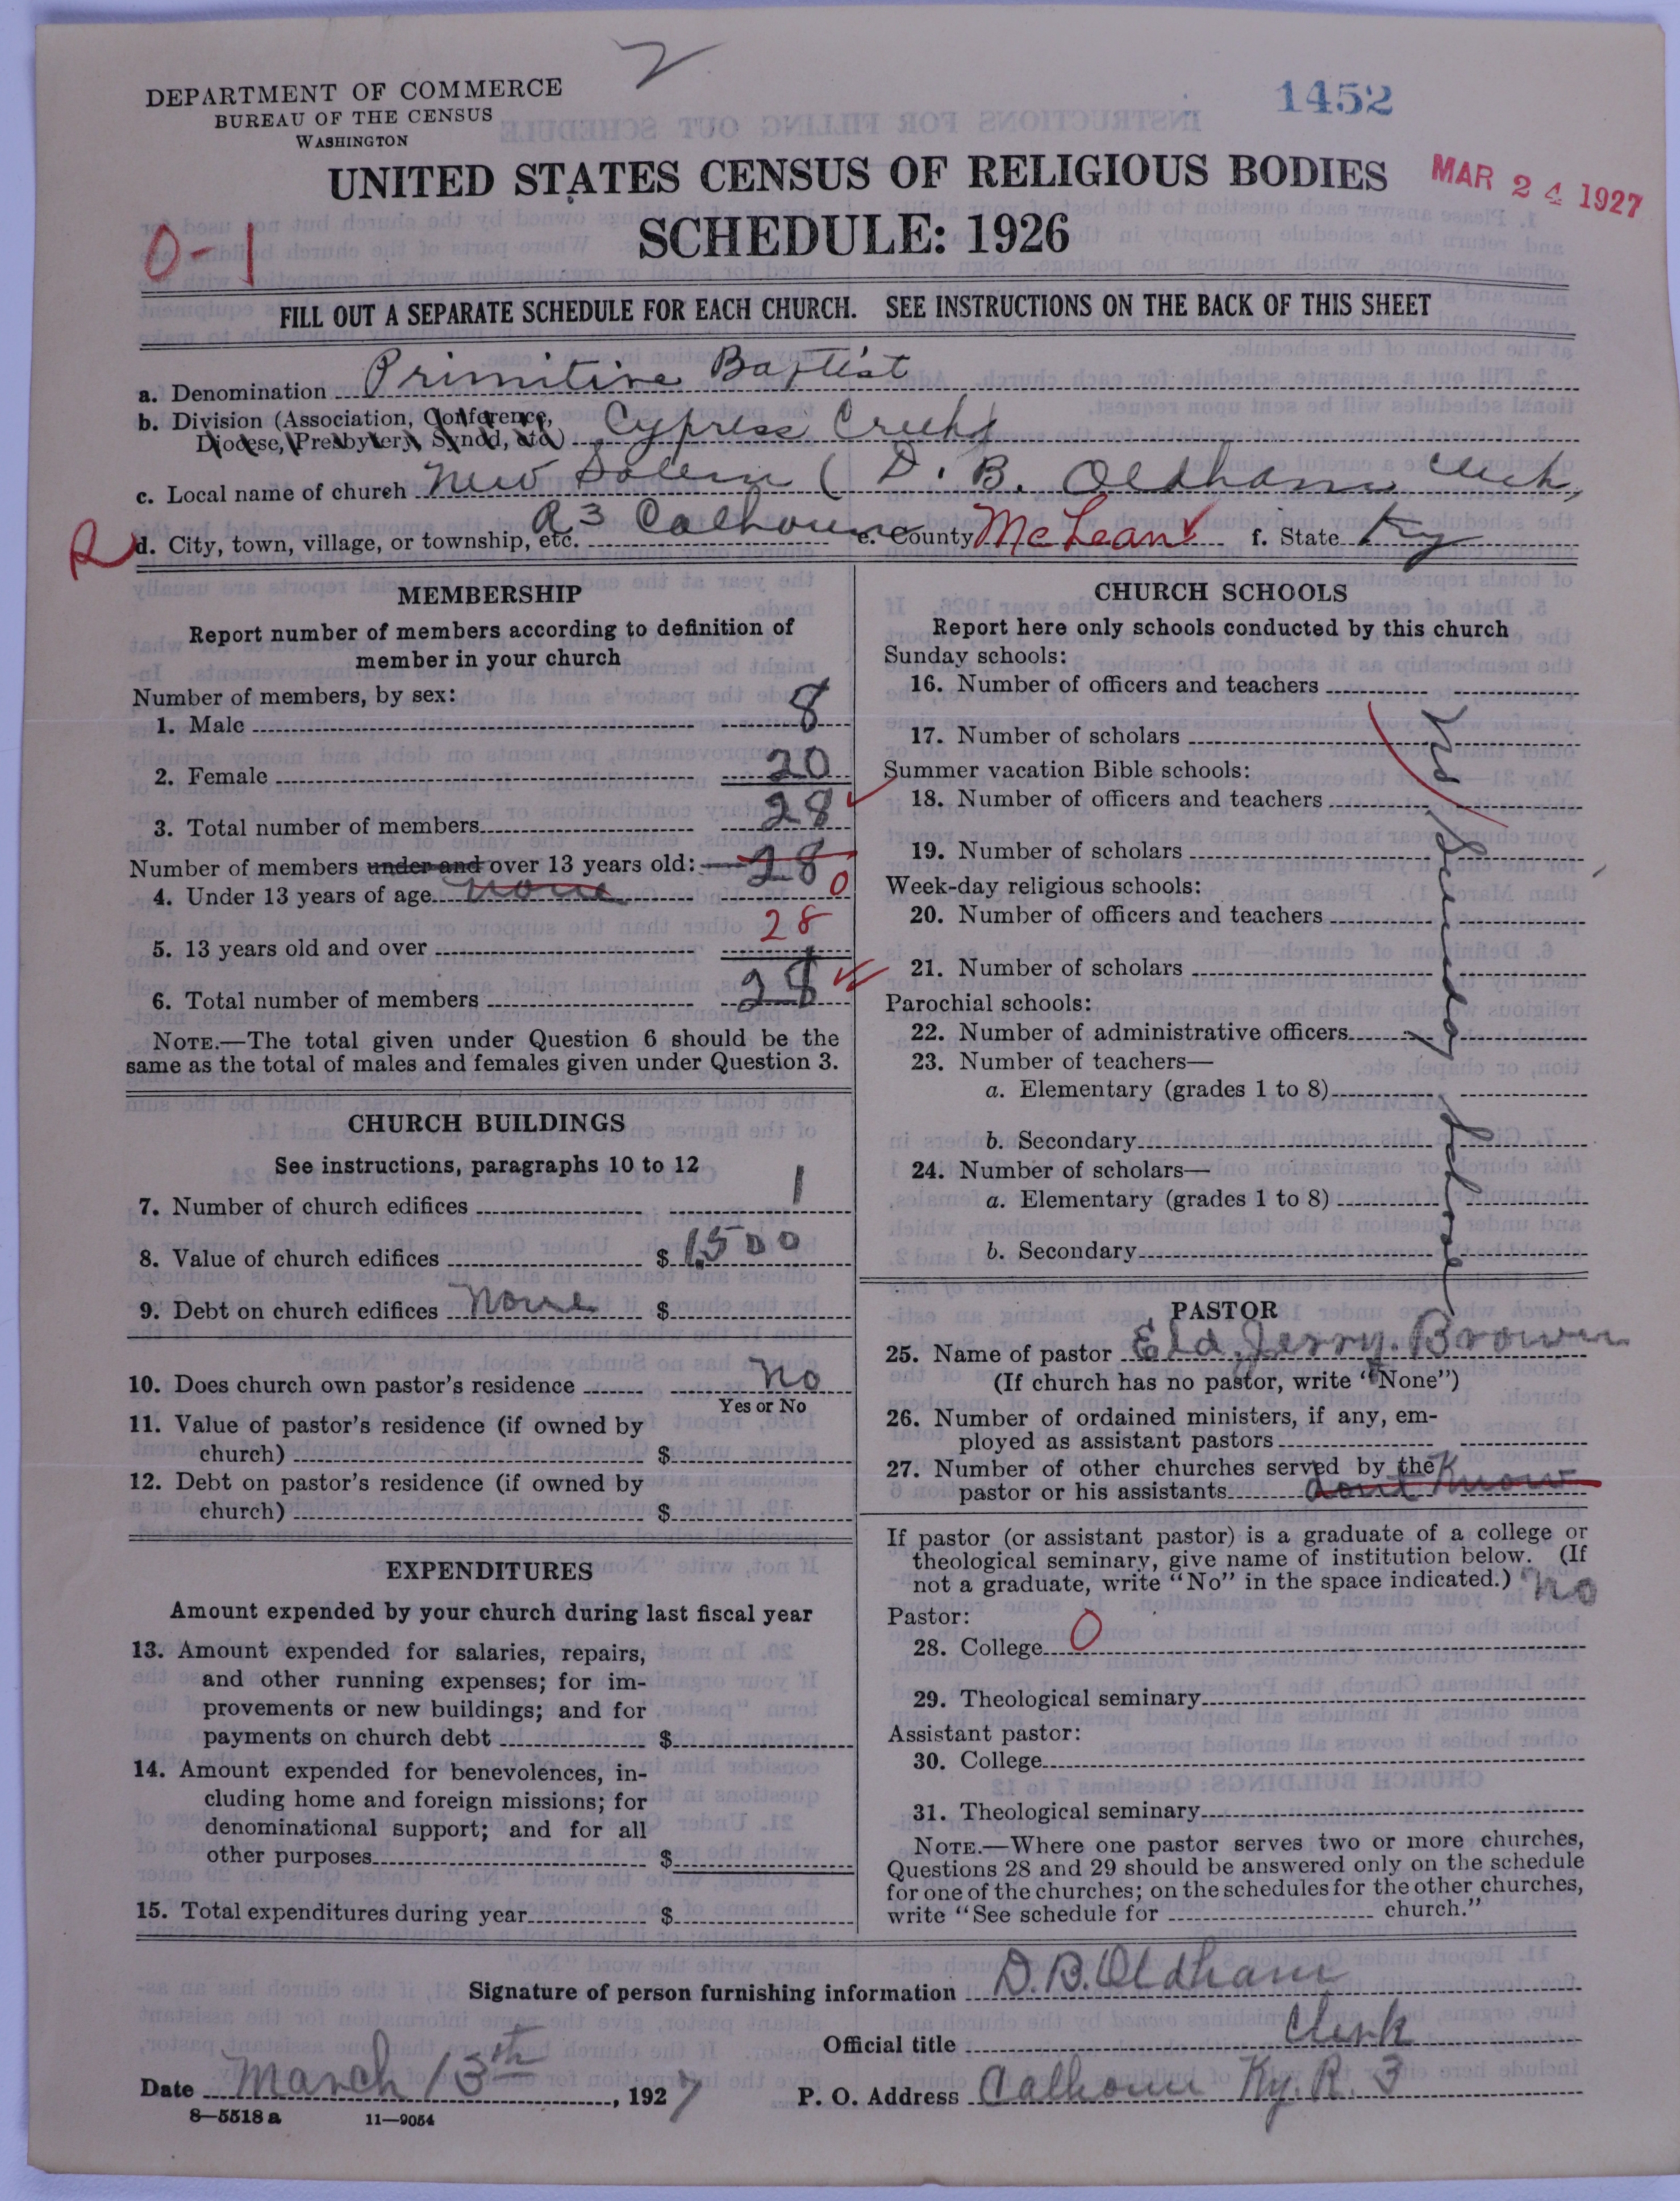 2
DEPARTMENT OF COMMERCE
BUREAU OF THE CENSUS
WASHINGTON
1452
UNITED STATES CENSUS OF RELIGIOUS BODIES
MAR 24 1927
SCHEDULE: 1926
0-1
FILL OUT A SEPARATE SCHEDULE FOR EACH CHURCH. SEE INSTRUCTIONS ON THE BACK OF THIS SHEET
a. Denomination Primitive Baptist
b. Division (Association, Conference, Diocese, Presbytery, Synod, etc.) Cypress Creek
c. Local name of church New Salem ( D. B. Oldham Clerk,
R d. City, town, village, or township, etc. R 3 Calhoun e. County McLean f. State Ky
MEMBERSHIP
Report number of members according to definition of
member in your church
Number of members, by sex:
1. Male 8
2. Female 20
3. Total number of members 28
Number of members under and over 13 years old: 28
4. Under 13 years of age none 0
5. 13 years old and over 28
6. Total number of members 28
NOTE.—The total given under Question 6 should be the
same as the total of males and females given under Question 3.
CHURCH BUILDINGS
See instructions, paragraphs 10 to 12
7. Number of church edifices 1
8. Value of church edifices $ 1500
9. Debt on church edifices None $
10. Does church own pastor's residence No
Yes or No
11. Value of pastor's residence (if owned by
church) $
12. Debt on pastor's residence (if owned by
church) $
EXPENDITURES
Amount expended by your church during last fiscal year
13. Amount expended for salaries, repairs,
and other running expenses; for im-
provements or new buildings; and for
payments on church debt $
14. Amount expended for benevolences, in-
cluding home and foreign missions; for
denominational support; and for all
other purposes $
15. Total expenditures during year $
CHURCH SCHOOLS
Report here only schools conducted by this church
Sunday schools:
16. Number of officers and teachers
17. Number of scholars
Summer vacation Bible schools:
18. Number of officers and teachers
19. Number of scholars
Week-day religious schools:
20. Number of officers and teachers
21. Number of scholars
Parochial schools:
22. Number of administrative officers
23. Number of teachers—
a. Elementary (grades 1 to 8)
b. Secondary
24. Number of scholars—
a. Elementary (grades 1 to 8)
b. Secondary
No Sunday School
PASTOR
25. Name of pastor Eld. Jerry. Brown
(If church has no pastor, write "None")
26. Number of ordained ministers, if any, em-
ployed as assistant pastors
27. Number of other churches served by the
pastor or his assistants dont Know
If pastor (or assistant pastor) is a graduate of a college or
theological seminary, give name of institution below. (If
not a graduate, write "No" in the space indicated.) No
Pastor:
28. College 0
29. Theological seminary
Assistant pastor:
30. College
31. Theological seminary
NOTE.—Where one pastor serves two or more churches,
Questions 28 and 29 should be answered only on the schedule
for one of the churches; on the schedules for the other churches,
write "See schedule for church."
Signature of person furnishing information D. B. Oldham
Official title Clerk
Date March 13th, 1927 P. O. Address Calhoun Ky. R. 3
8—5518 a 11—9054